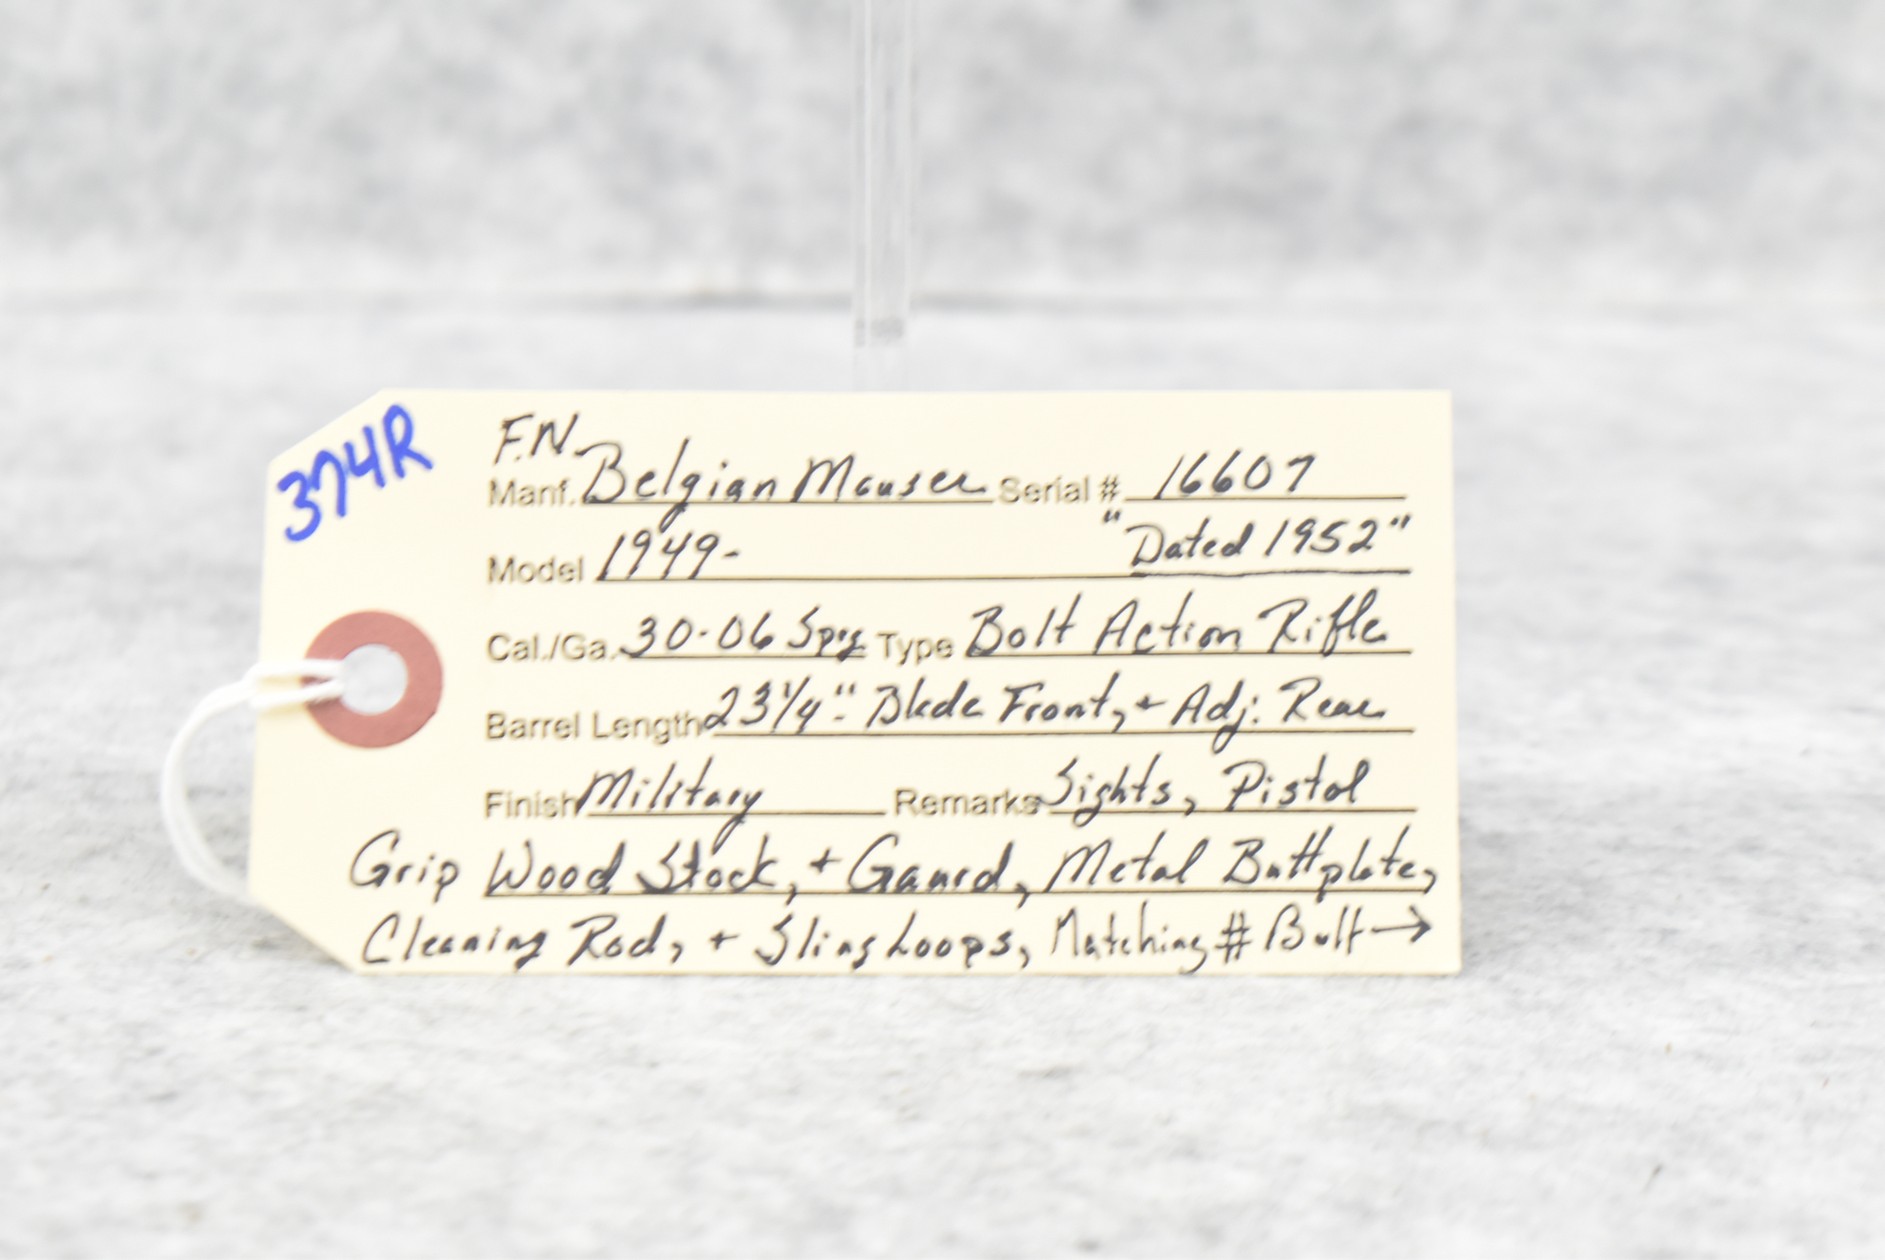 374R
F.N.
Manf. Belgian Mauser Serial # 16607
Model 1949- "Dated 1952"
Cal./Ga. 30-06 Sprg Type Bolt Action Rifle
Barrel Length 23 1/4"- Blade Front, + Adj. Rear
Finish Military Remarks Sights, Pistol
Grip Wood Stock, + Gaurd, Metal Buttplate,
Cleaning Rod, + Sling Loops, Matching # Bolt →